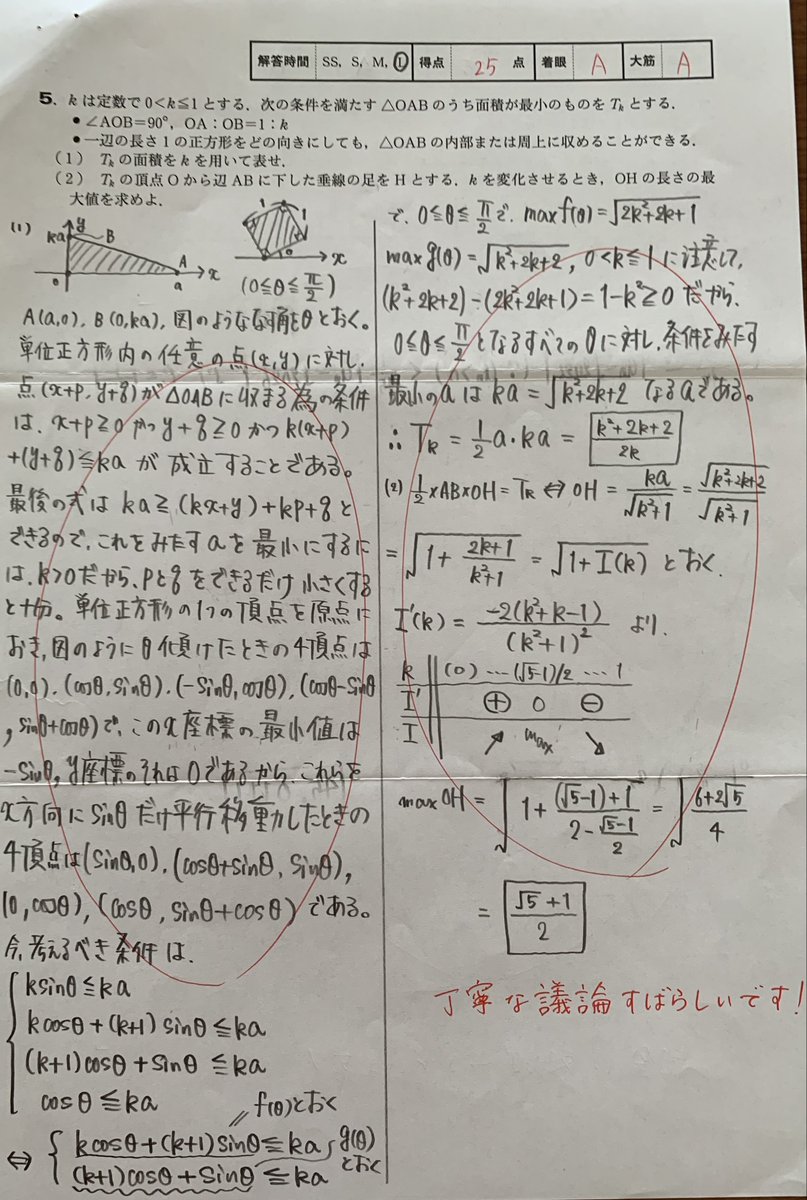 解答時間 SS, S, M, L 得点 25 点 着眼 A 大筋 A
5. kは定数で0<k≦1とする. 次の条件を満たす△OABのうち面積が最小のものをT_kとする.
● ∠AOB=90°, OA:OB=1:k
● 一辺の長さ1の正方形をどの向きにしても, △OABの内部または周上に収めることができる.
(1) T_kの面積をkを用いて表せ.
(2) T_kの頂点Oから辺ABに下した垂線の足をHとする. kを変化させるとき, OHの長さの最
大値を求めよ.
(1)
y
ka
B
A
o
a
x
1
1
θ
x
(0≦θ≦π/2)
A(a,0), B(0,ka), 図のようなす角をθとおく。
単位正方形内の任意の点(x,y)に対し,
点(x+p, y+q)が△OABに収まる為の条件
は, x+p≧0かつy+q≧0かつk(x+p)
+(y+q)≦kaが成立することである。
最後の式はka≧(kx+y)+kp+qと
できるので, これをみたすaを最小にするに
は, k>0だから, pとqをできるだけ小さくする
と十分。単位正方形の1つの頂点を原点に
おき, 図のようにθ傾けたときの4頂点は
(0,0), (cosθ, sinθ), (-sinθ, cosθ), (cosθ-sinθ
, sinθ+cosθ)で, このx座標の最小値は
-sinθ, y座標のそれは0であるから, これらを
x方向にsinθだけ平行移動したときの
4頂点は(sinθ,0), (cosθ+sinθ, sinθ),
(0, cosθ), (cosθ, sinθ+cosθ)である。
今, 考えるべき条件は,
ksinθ≦ka
kcosθ+(k+1)sinθ≦ka
(k+1)cosθ+sinθ≦ka
cosθ≦ka
f(θ)とおく
⇔ { kcosθ+(k+1)sinθ≦ka g(θ)
(k+1)cosθ+sinθ≦ka とおく
で, 0≦θ≦π/2で, maxf(θ)=√(2k²+2k+1)
maxg(θ)=√(k²+2k+2), 0<k≦1に注意して,
(k²+2k+2)-(2k²+2k+1)=1-k²≧0だから,
0≦θ≦π/2となるすべてのθに対し, 条件をみたす
最小のaはka=√(k²+2k+2)なるaである。
∴ T_k=1/2 a・ka=(k²+2k+2)/2k
(2) 1/2×AB×OH=T_k⇔OH=ka/√(k²+1)=√(k²+2k+2)/√(k²+1)
=√(1+(2k+1)/(k²+1))=√(1+I(k))とおく.
I'(k)=-2(k²+k-1)/(k²+1)² より,
k (0) … (√5-1)/2 … 1
I' ⊕ 0 ⊖
I ↗ max ↘
maxOH=√(1+((√5-1)+1)/(2-(√5-1)/2))=√((6+2√5)/4)
=(√5+1)/2
丁寧な議論すばらしいです!